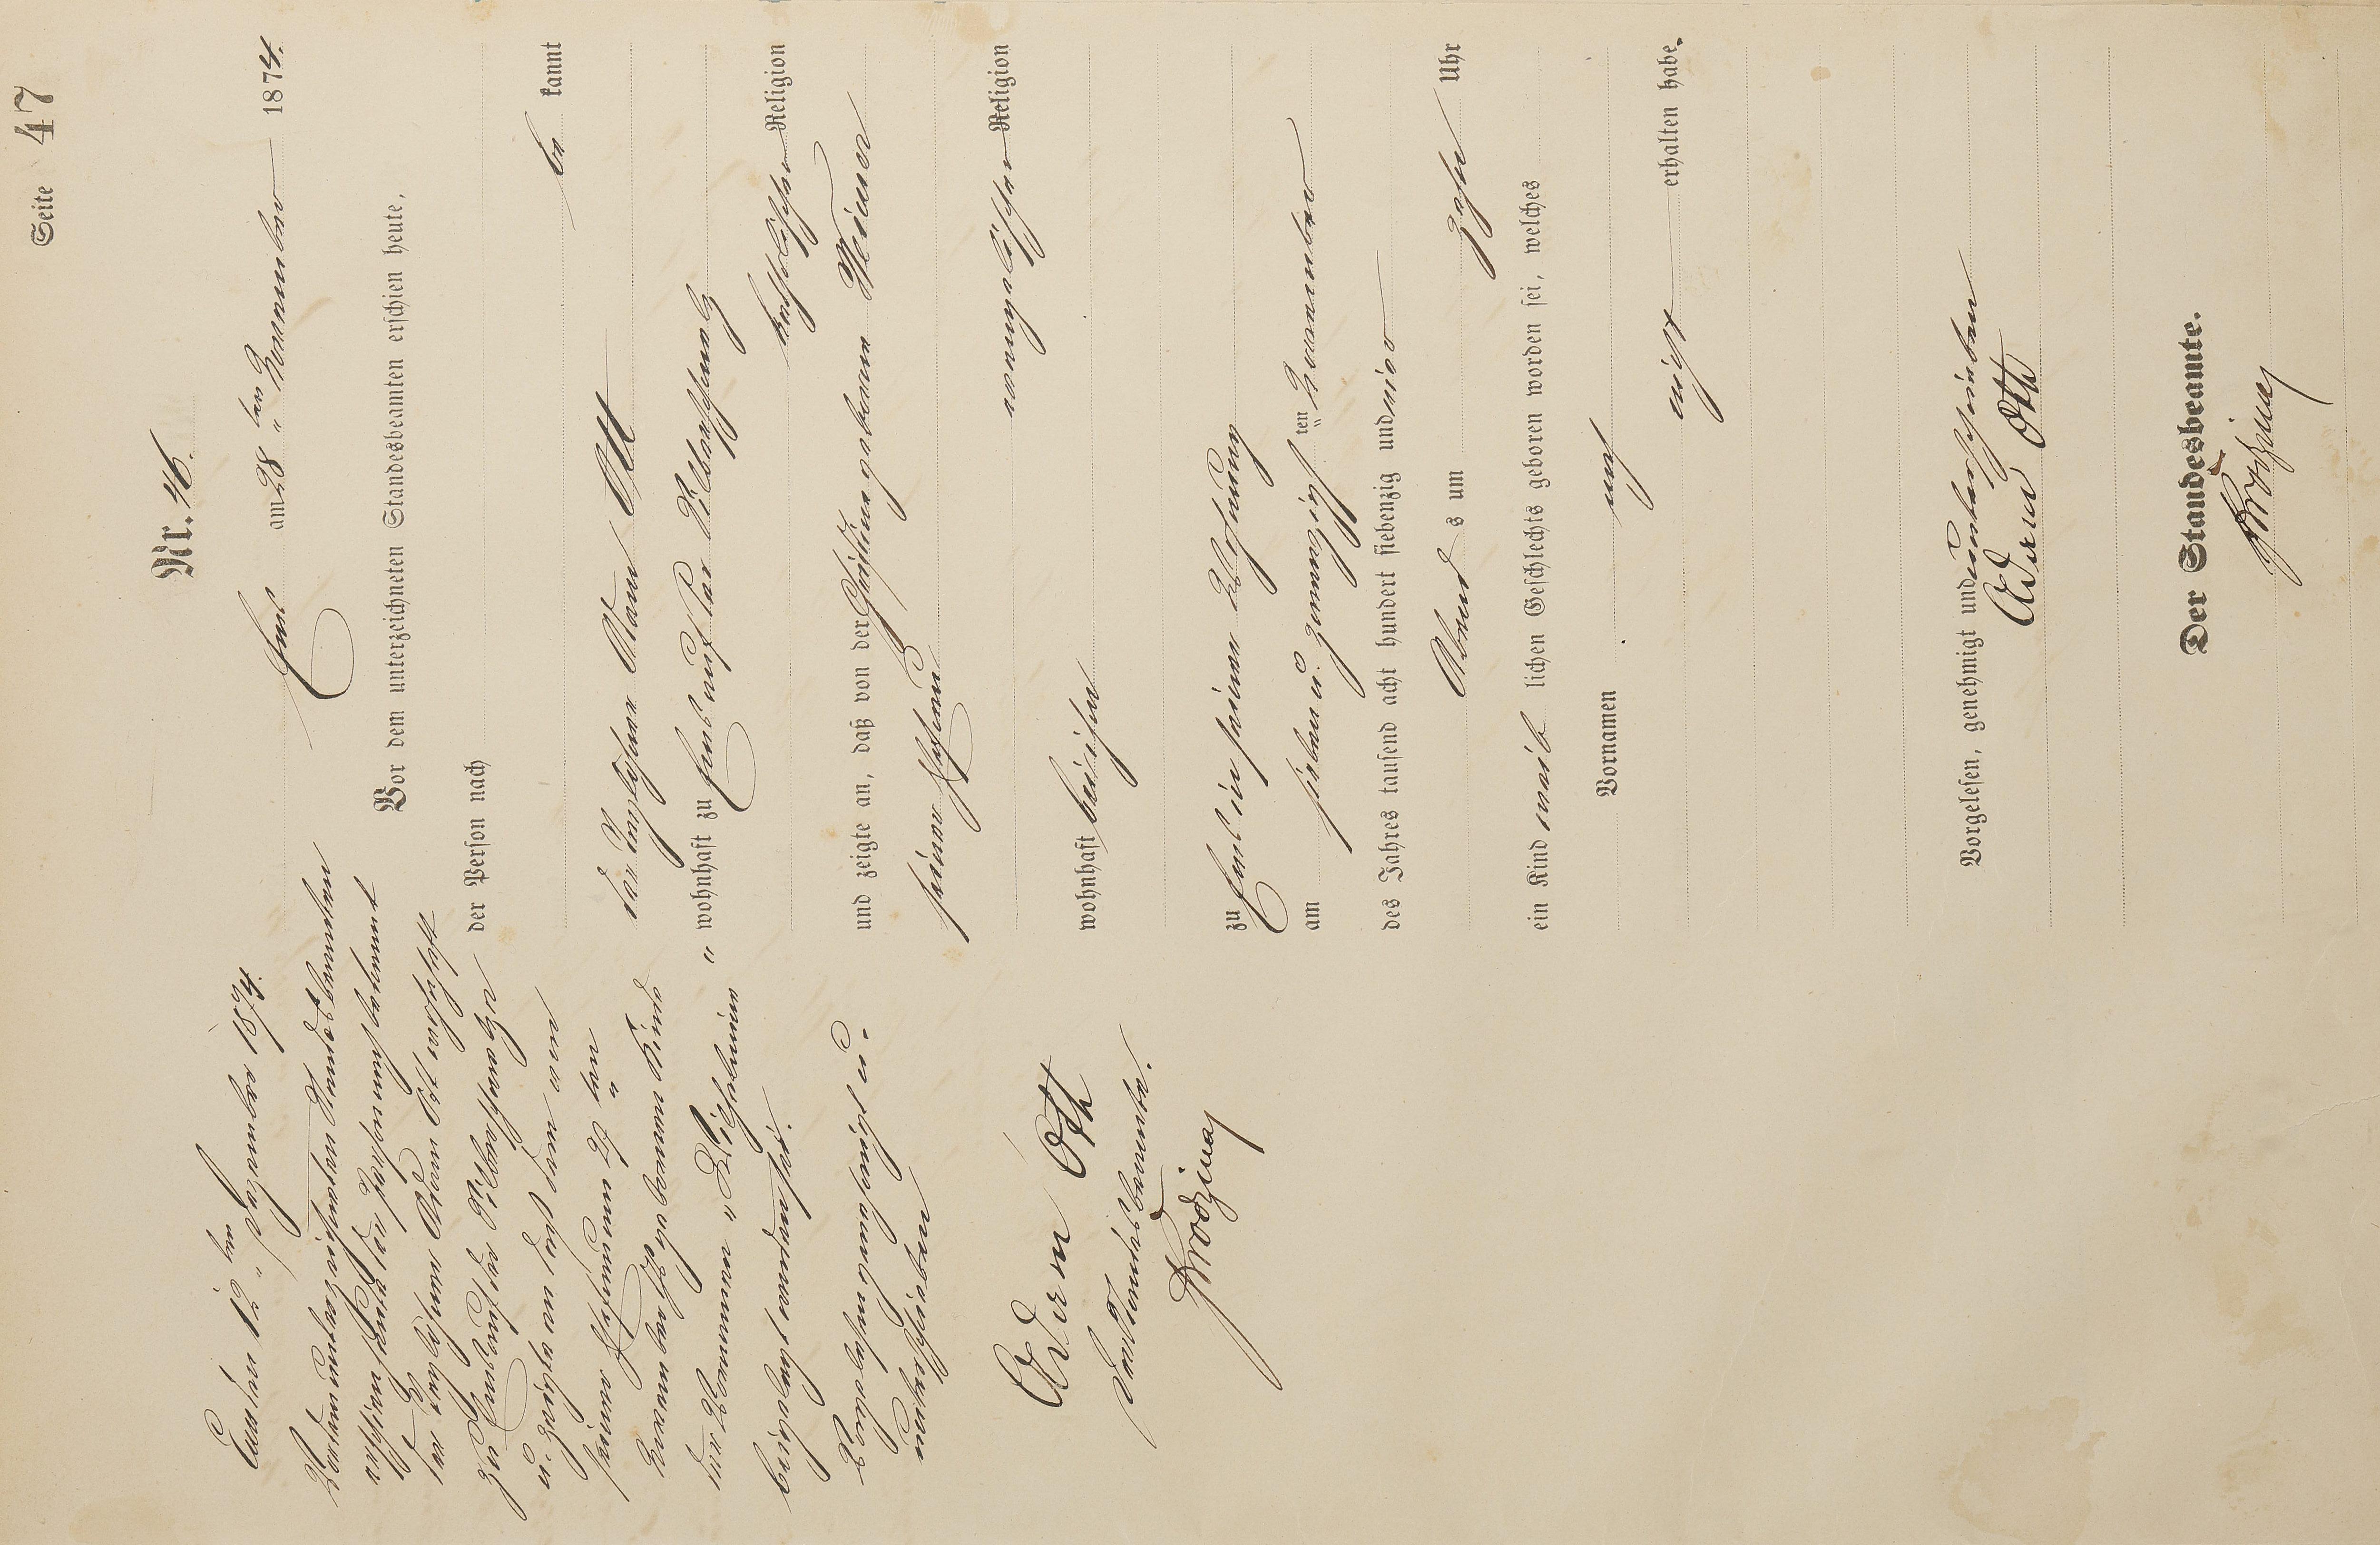 Seite 47
Nr. 46.
Ems am 28 ten November 1874.
Vor dem unterzeichneten Standesbeamten erschien heute,
der Person nach
be kannt
der Taglöhner Adam Ott
wohnhaft zu Ems auf der Silberschmelz
katholischer Religion
und zeigte an, daß von der Christine geborene
seiner Ehefrau
evangelischer Religion
wohnhaft bei ihm
zu Ems in seiner Wohnung
am sieben u. zwanzigst ten November
des Jahres tausend acht hundert siebenzig und vier
Abend s um zehn Uhr
ein Kind weib lichen Geschlechts geboren worden sei, welches
noch
Vornamen
nicht erhalten habe.
Vorgelesen, genehmigt und unterschrieben
Adam Ott
Der Standesbeamte.
Ems den 12 ten Dezember 1874.
Vor dem unterzeichneten Standesbeamten
erschien heute der Person nach bekannt
der Taglöhner Adam Ott wohnhaft
zu Ems auf der Silberschmelze
u. zeigte an daß dem von
seiner Ehefrau am 27 ten
November geborenen Kinde
der Vornamen
beigelegt worden sei.
Vorgelesen genehmigt u.
unterschrieben
Adam Ott
Der Standesbeamte.